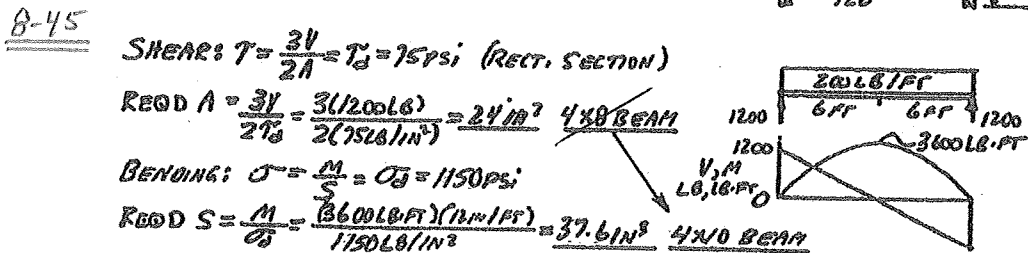 8-45
SHEAR: τ = 3V/2A = τd = 75psi (RECT. SECTION)
REQD A = 3V/2τd = 3(1200LB)/2(75LB/IN²) = 24 in² 4X8 BEAM
BENDING: σ = M/S = σd = 1150psi
REQD S = M/σd = (3600LB·FT)(12IN/FT)/1150LB/IN² = 37.6IN³ 4X10 BEAM
200LB/FT
6FT 6FT
1200 1200
1200
3600LB·FT
V, M
LB, LB·FT 0